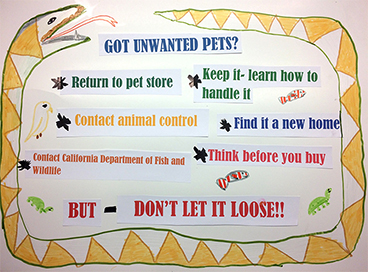 GOT UNWANTED PETS?
Return to pet store
Keep it- learn how to
handle it
Contact animal control
Find it a new home
Contact California Department of Fish and
Wildlife
Think before you buy
BUT - DON'T LET IT LOOSE!!